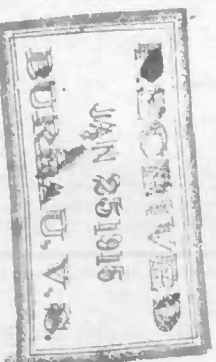 RECEIVED
JAN 25 1915
BUREAU, V. S.